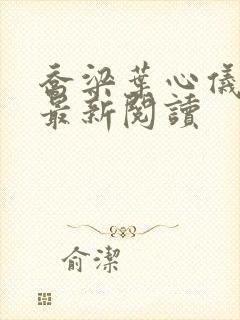 喬梁葉心儀
最新閱讀
俞潔